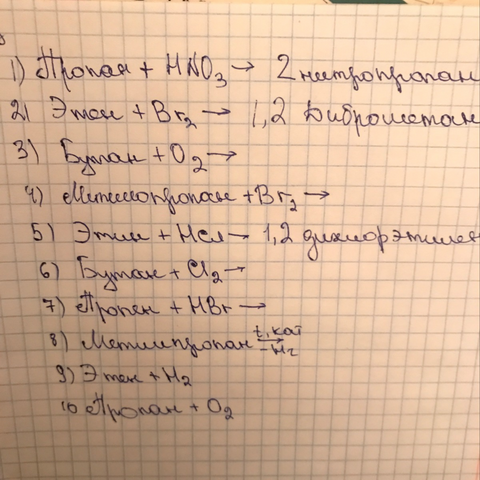 1) Пропан + HNO3 → 2 нитропропан
2) Этен + Br2 → 1,2 Дибромэтан
3) Бутан + O2 →
4) Метилпропан + Br2 →
5) Этин + HCl → 1,2 дихлорэтилен
6) Бутан + Cl2 →
7) Пропен + HBr →
8) Метилпропан t, кат → -H2
9) Этен + H2
10 Пропан + O2